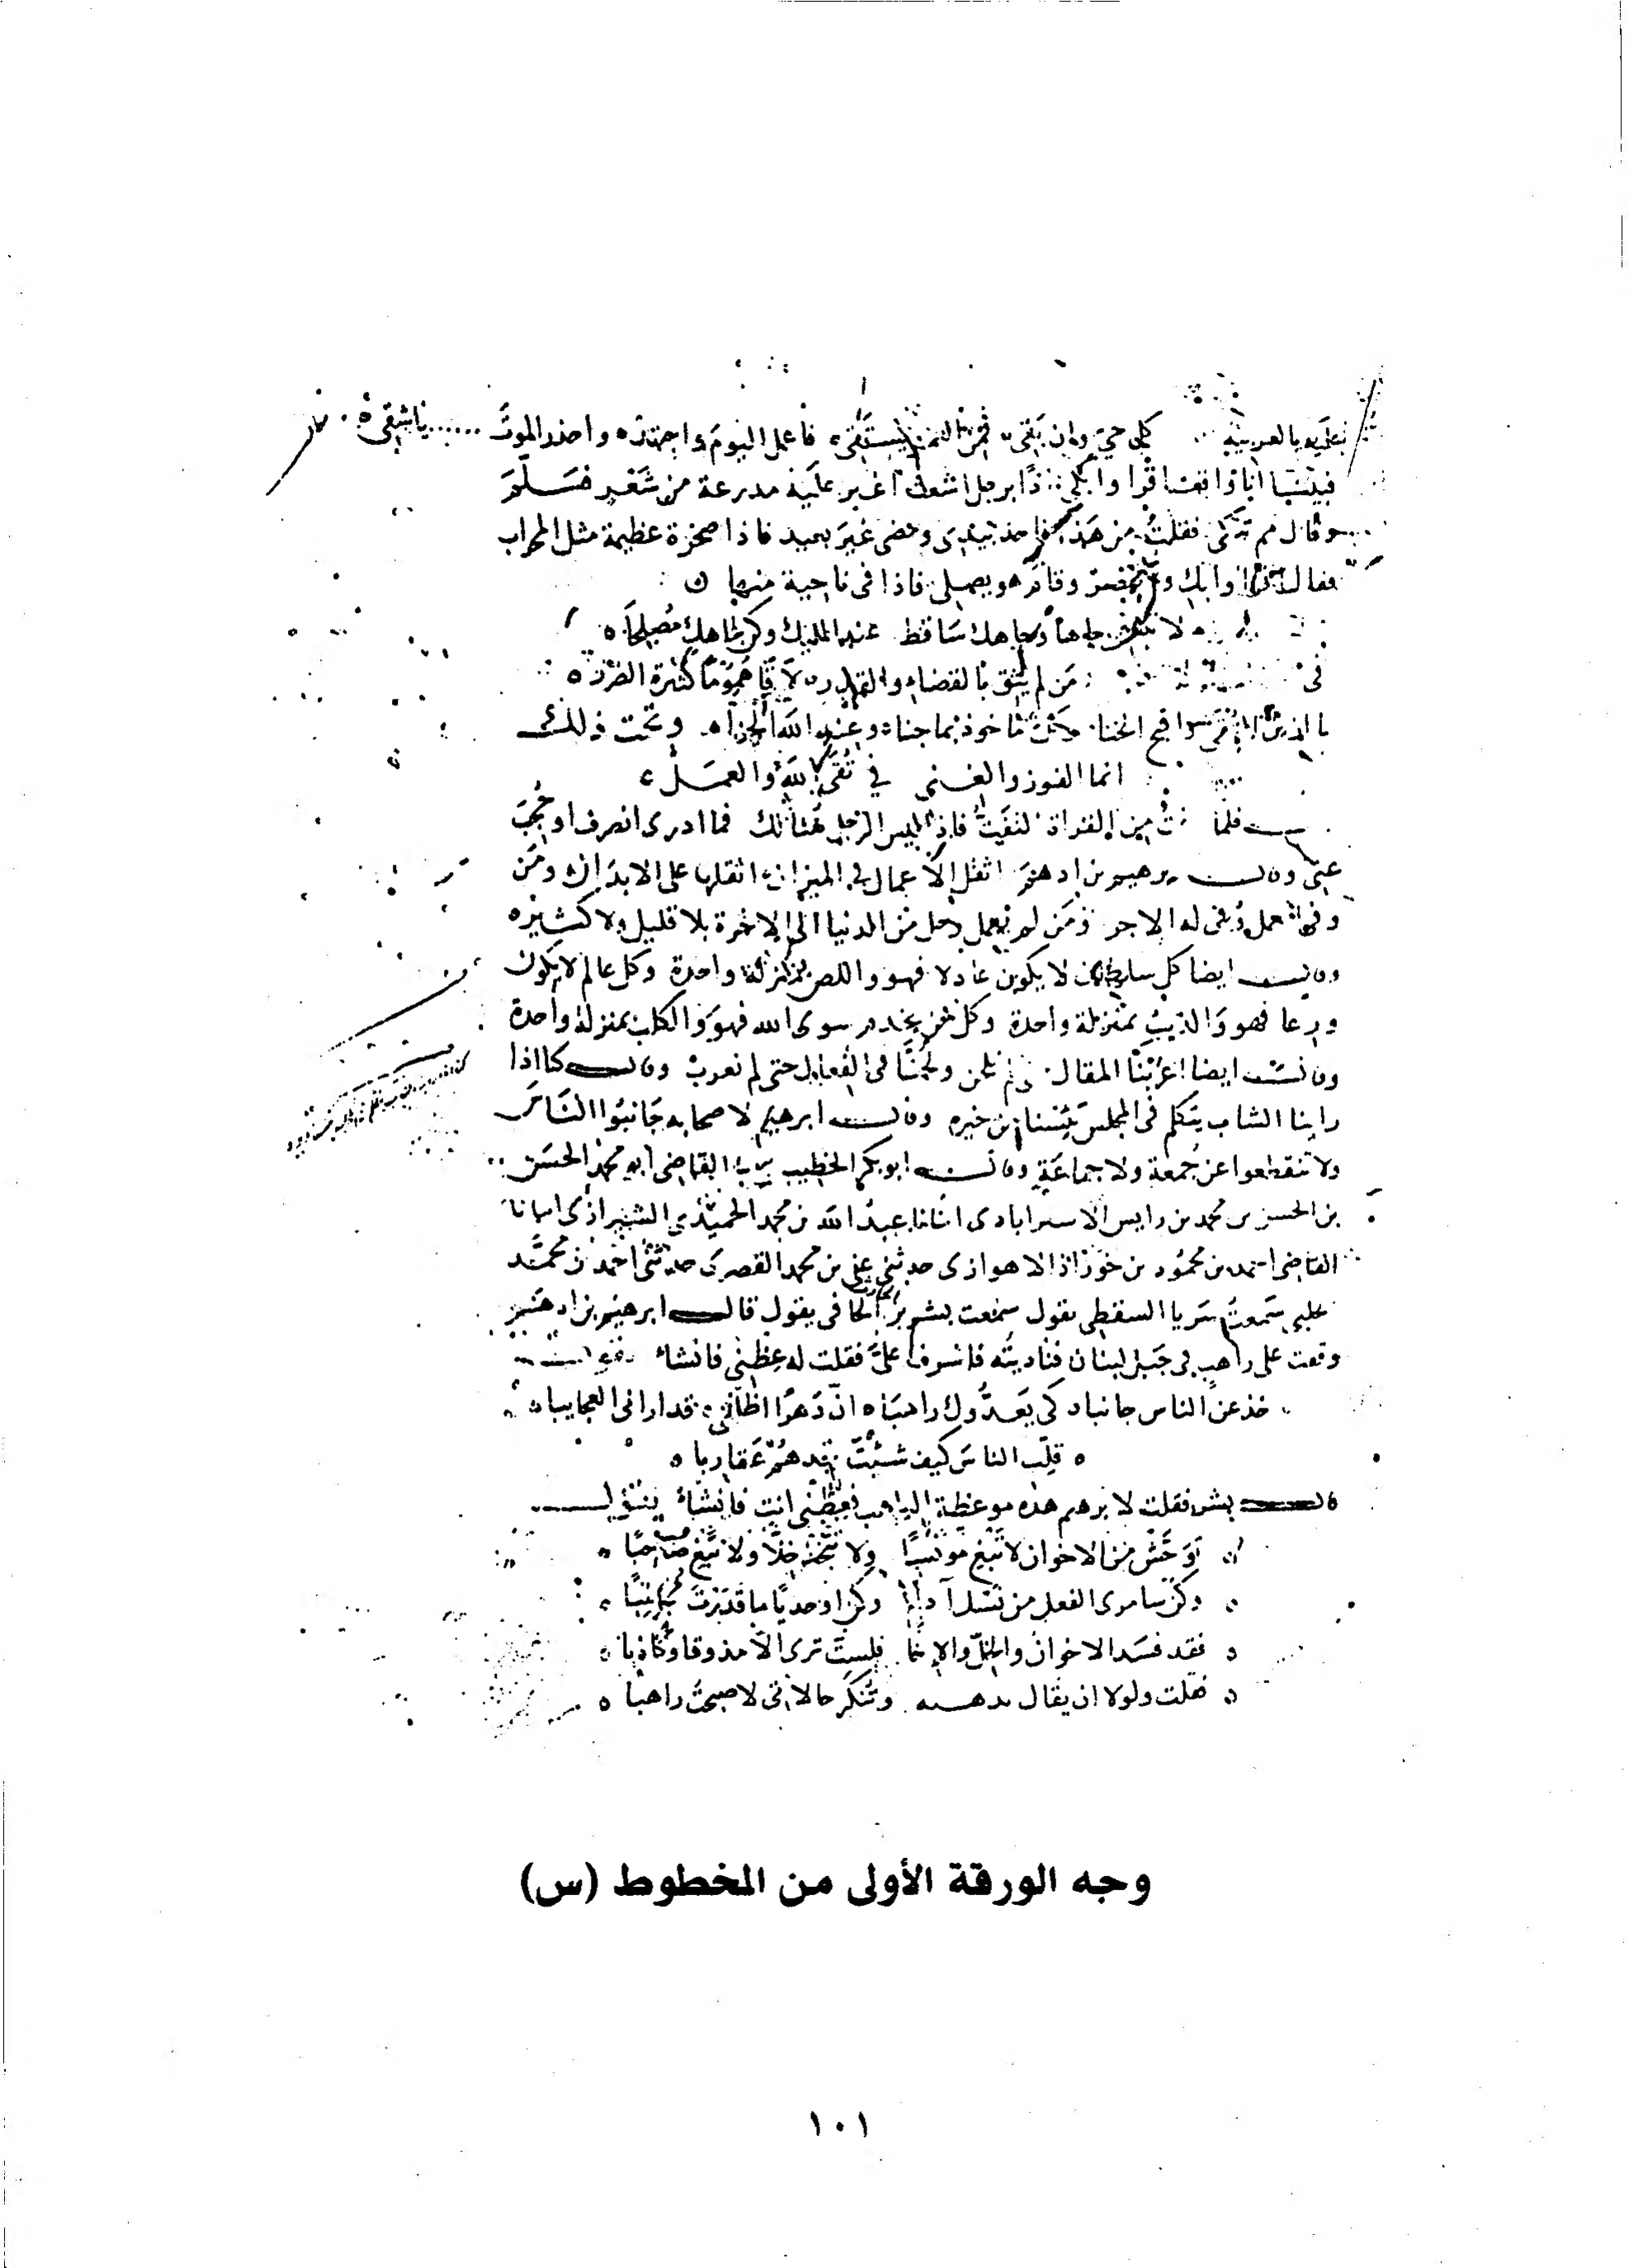 بالعربية كل حي وان بقى فمن العمر يستقى فاعمل اليوم واجتهد واحذر الموت ...... ياشقى
فبينما انا واقف اقرا وابكى اذا برجل اشعث اغبر عليه مدرعة من شعر فسلم
وقال مم تبكى فقلت من هذا فاخذ بيدى ومضى غير بعيد فاذا صخرة عظيمة مثل المحراب
فقال اقرا وابك ولا تقصر وقام هو يصلى فاذا فى ناحية منها
لا جاها وجاهك ساقط عند المليك وكن لجاهك مصلحا
فى من لم يثق بالقضاء والقدر لاقى هموما كثيرة الضرر
الخنا ماخوذ بما جنا وعند الله الجزا وتحت ذلك
انما الفوز والغنى فى تقى الله والعمل
فلما من القراة فاذا ليس الرجل هناك فما ادرى انصرف او حجب
عنى وقال ابرهيم بن ادهم اثقل الاعمال فى الميزان اثقلها على الابدان ومن
وفى العمل وفى له الاجر ومن لم يعمل رحل من الدنيا الى الاخرة بلا قليل ولا كثير
وقال ايضا كل سلطان لا يكون عادلا فهو واللص بمنزلة واحدة وكل عالم لا يكون
ورعا فهو والذيب بمنزلة واحدة وكل من يخدم سوى الله فهو والكلب بمنزلة واحدة
وقال ايضا اعربنا المقال حتى لم نلحن ولحنا فى الفعال حتى لم نعرب وقال كنا اذا
راينا الشاب يتكلم فى المجلس يئسنا من خيره وقال ابرهيم لاصحابه جانبوا الناس
ولا تنقطعوا عن جمعة ولا جماعة وقال ابو بكر الخطيب القاضى ابو محمد الحسن
بن الحسن بن محمد بن رامين الاستراباذى انانا عبد الله بن محمد الحميدى الشيرازى انبانا
القاضى احمد بن محمود بن خرزاذ الاهوازى حدثنى على بن محمد القصرى حدثنى احمد بن محمد
سمعت سريا السقطى يقول سمعت بشر بن الحارث الحافى يقول قال ابرهيم بن ادهم
وقفت على راهب فى جبل لبنان فناديته فاشرف على فقلت له عظنى فانشا يقول
خذ عن الناس جانبا كى يعدوك راهبا ان دهرا اظلنى قد ارانى العجايبا
قلب الناس كيف شئت تجدهم عقاربا
قال بشر فقلت لابرهيم هذه موعظة الراهب فعظنى انت فانشا يقول
توحش من الاخوان لا تبغ مونسا ولا تتخذ خلا ولا تبغ صاحبا
وكن سامرى الفعل من نسل آدم وكن اوحديا ما قدرت مجانبا
فقد فسد الاخوان والحب والاخا فلست ترى الا مذوقا وكاذبا
فقلت ولولا ان يقال مدهده وتنكر حالاتى لاصبحت راهبا
وجه الورقة الأولى من المخطوط (س)
١٠١